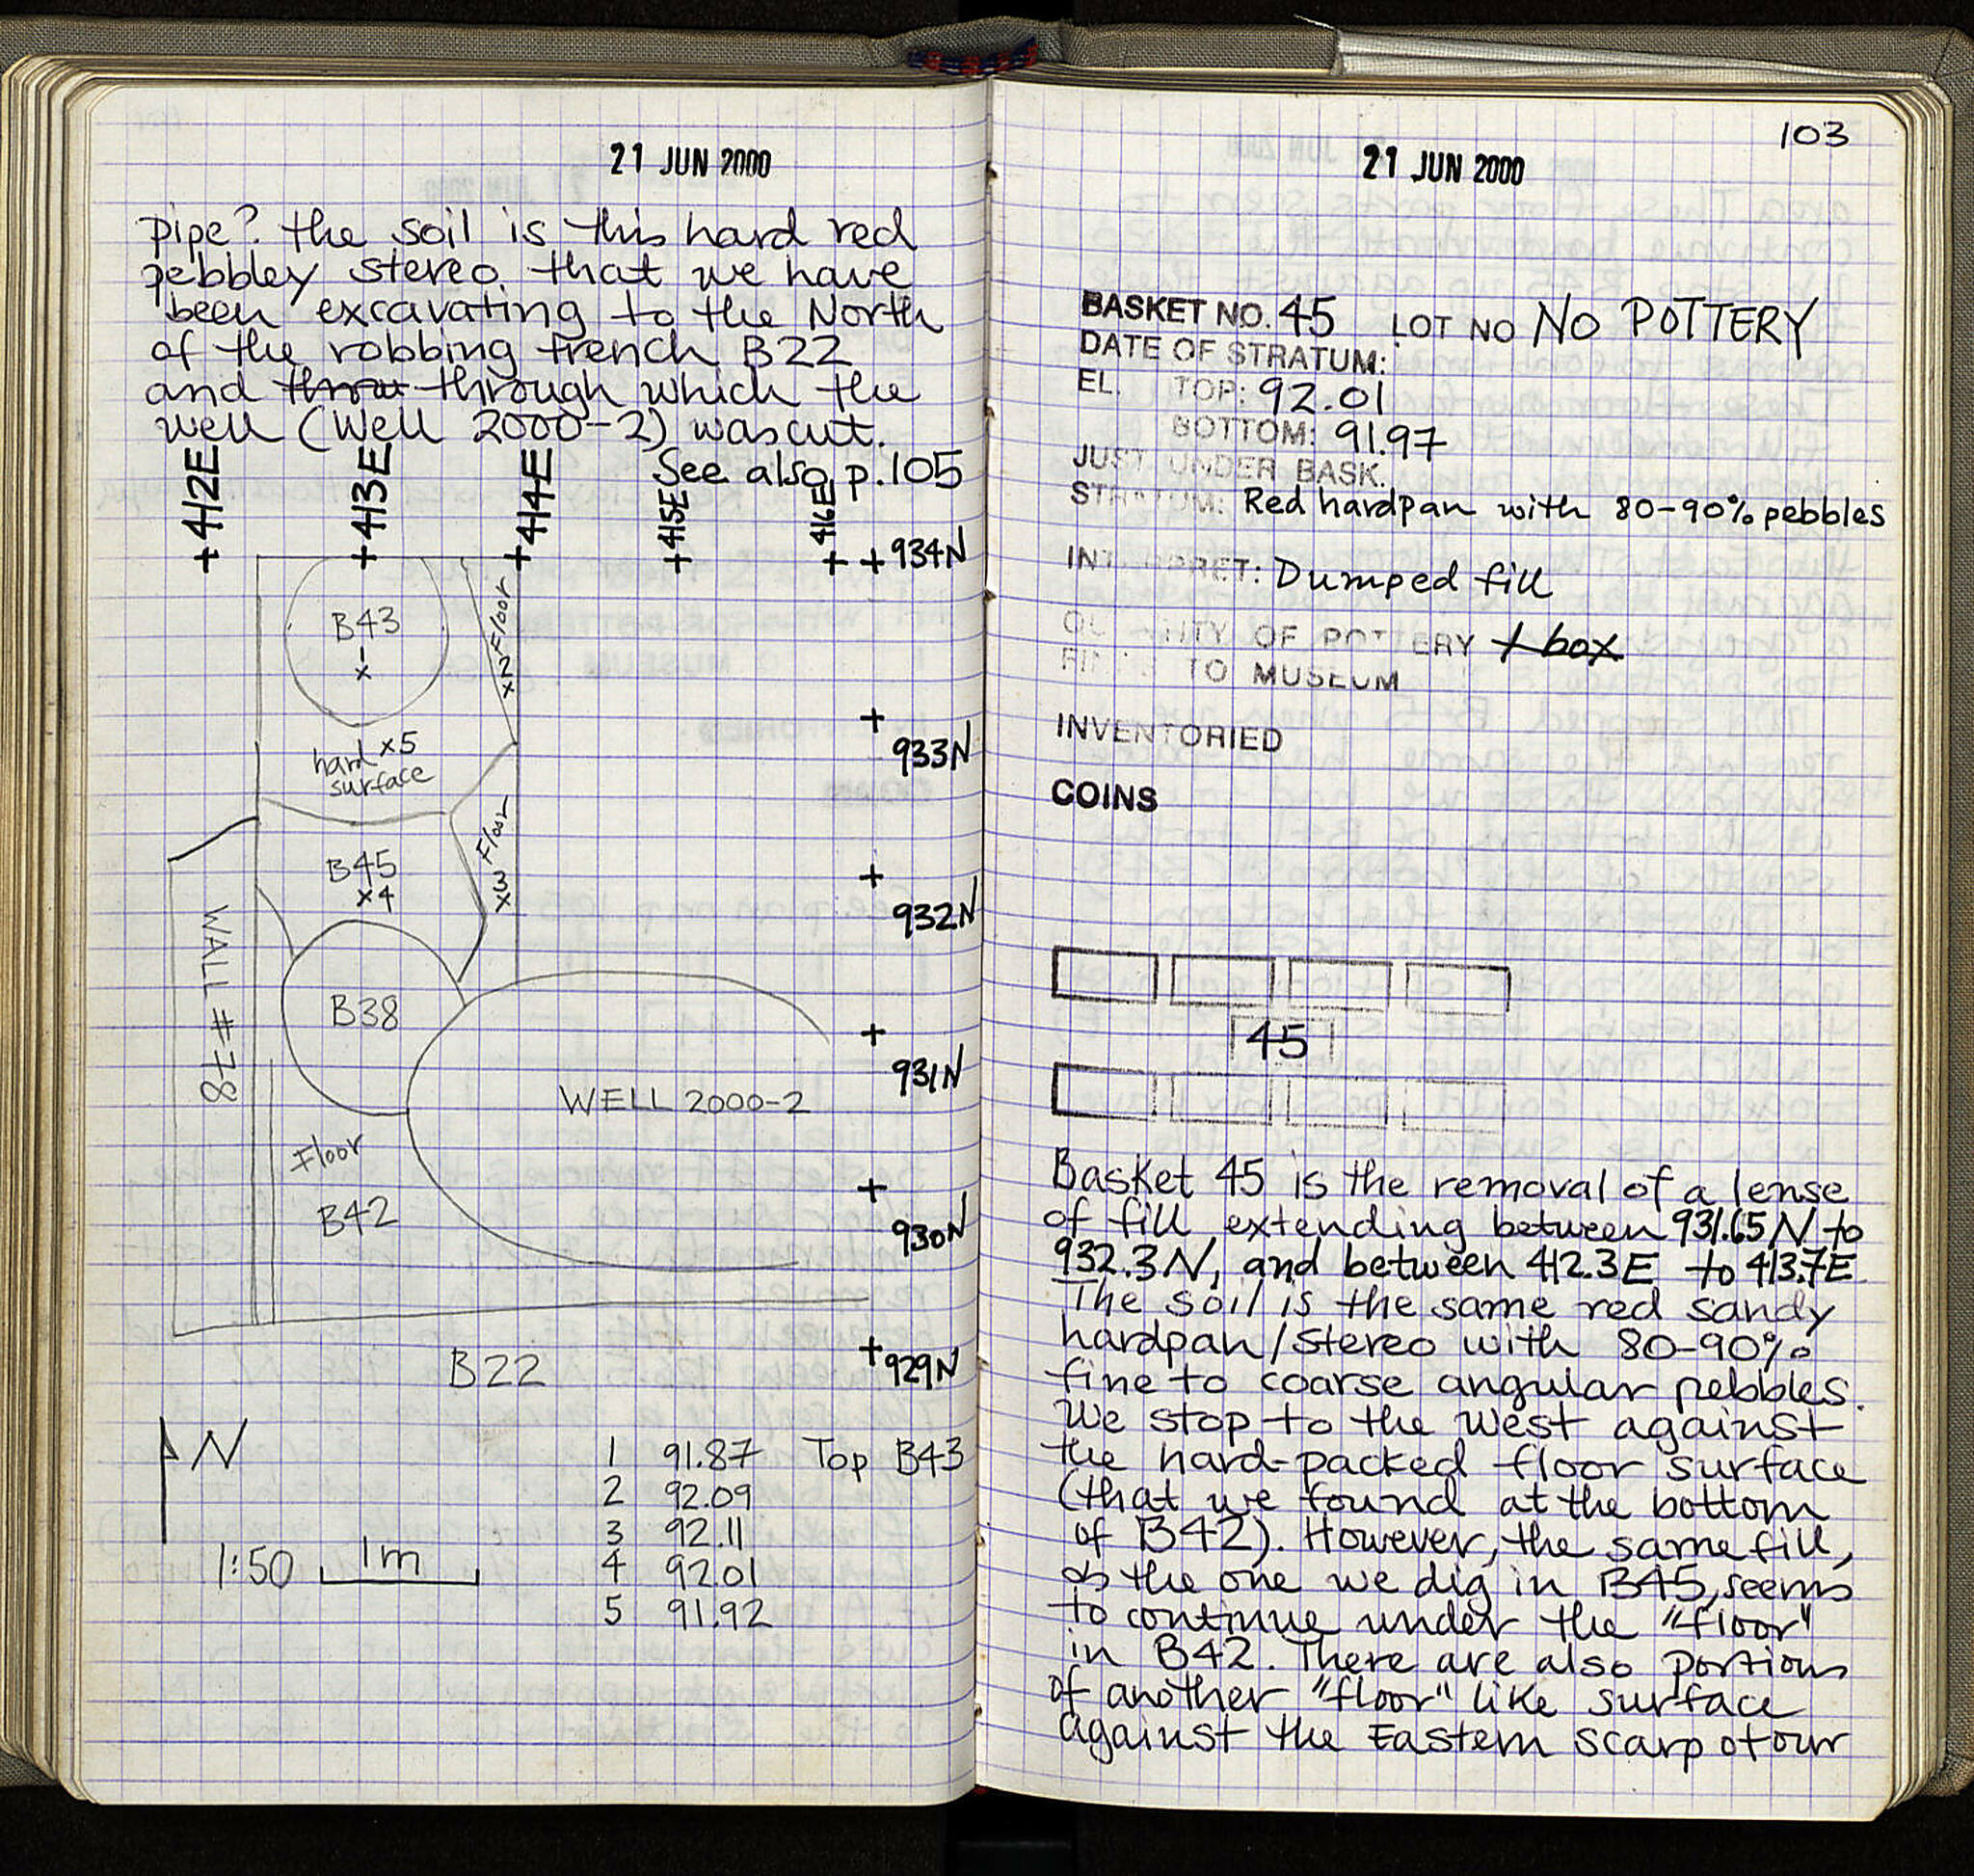 21 JUN 2000
pipe? the soil is this hard red
pebbley stereo that we have
been excavating to the North
of the robbing trench B22
and throu through which the
well (Well 2000-2) was cut.
See also p.105
+412E +413E +414E +415E 416E
+ +934N
B43
x1
x2 Floor
hard x5
surface
+
933N
Floor
x3
B45
x4
+
932N
WALL #78
B38
+
931N
WELL 2000-2
Floor
B42
+
930N
B22
+929N
N
1:50 1m
1 91.87 Top B43
2 92.09
3 92.11
4 92.01
5 91.92
103
21 JUN 2000
BASKET NO. 45 LOT NO NO POTTERY
DATE OF STRATUM:
EL. TOP: 92.01
BOTTOM: 91.97
JUST UNDER BASK.
STRATUM: Red hardpan with 80-90% pebbles
INTERPRET: Dumped fill
QUANTITY OF POTTERY 1 box
FINDS TO MUSEUM
INVENTORIED
COINS
45
Basket 45 is the removal of a lense
of fill extending between 931.65N to
932.3N, and between 412.3E to 413.7E
The soil is the same red sandy
hardpan/stereo with 80-90%
fine to coarse angular pebbles.
We stop to the west against
the hard-packed floor surface
(that we found at the bottom
of B42). However, the same fill,
as the one we dig in B45, seems
to continue under the "floor"
in B42. There are also portions
of another "floor" like surface
against the Eastern scarp of our